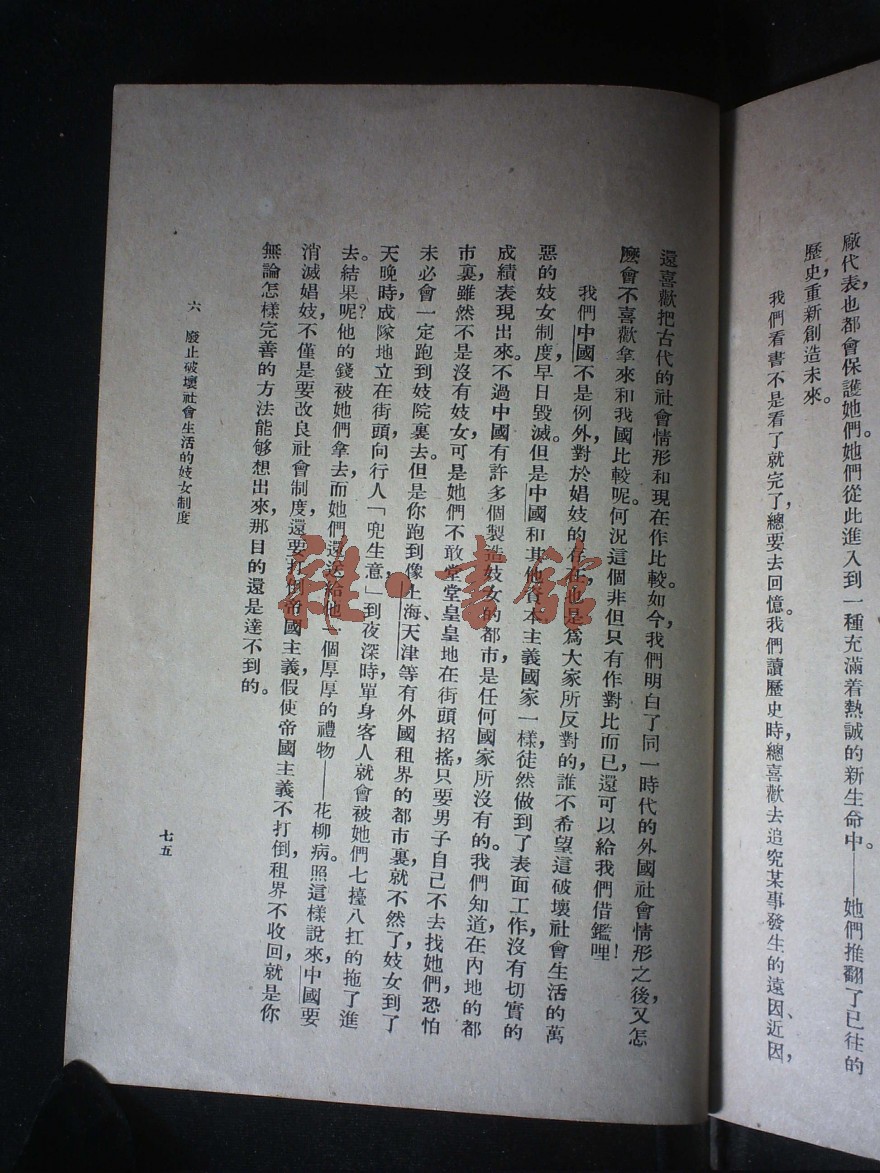 廠代表也都會保護她們。她們從此進入到一種充滿着熱誠的新生命中——她們推翻了已往的
歷史,重新創造未來。
我們看書不是看了就完了,總要去回憶。我們讀歷史時,總喜歡去追究某事發生的遠因、近因,
還喜歡把古代的社會情形和現在作比較。如今,我們明白了同一時代的外國社會情形之後,又怎
麼會不喜歡拿來和我國比較呢。何況這個非但只有作對比而已,還可以給我們借鑑哩!
我們中國不是例外,對於娼妓的存在,也是爲大家所反對的,誰不希望這破壞社會生活的萬
惡的妓女制度,早日毀滅。但是中國和其他資本主義國家一樣,徒然做到了表面工作,沒有切實的
成績表現出來。不過中國有許多個製造妓女的都市是任何國家所沒有的。我們知道,在內地的都
市裏,雖然不是沒有妓女,可是她們不敢堂堂皇皇地在街頭招搖,只要男子自己不去找她們,恐怕
未必會一定跑到妓院裏去。但是你跑到像上海、天津等有外國租界的都市裏,就不然了。妓女到了
天晚時,成隊地立在街頭向行人「兜生意,」到夜深時,單身客人就會被她們七擡八扛的拖了進
去。結果呢?他的錢被她們拿去,而她們還送給他一個厚厚的禮物——花柳病。照這樣說來,中國要
消滅娼妓,不僅是要改良社會制度,還要打倒帝國主義,假使帝國主義不打倒,租界不收回,就是你
無論怎樣完善的方法能够想出來,那目的還是達不到的。
六 廢止破壞社會生活的妓女制度
七五
雜·書館